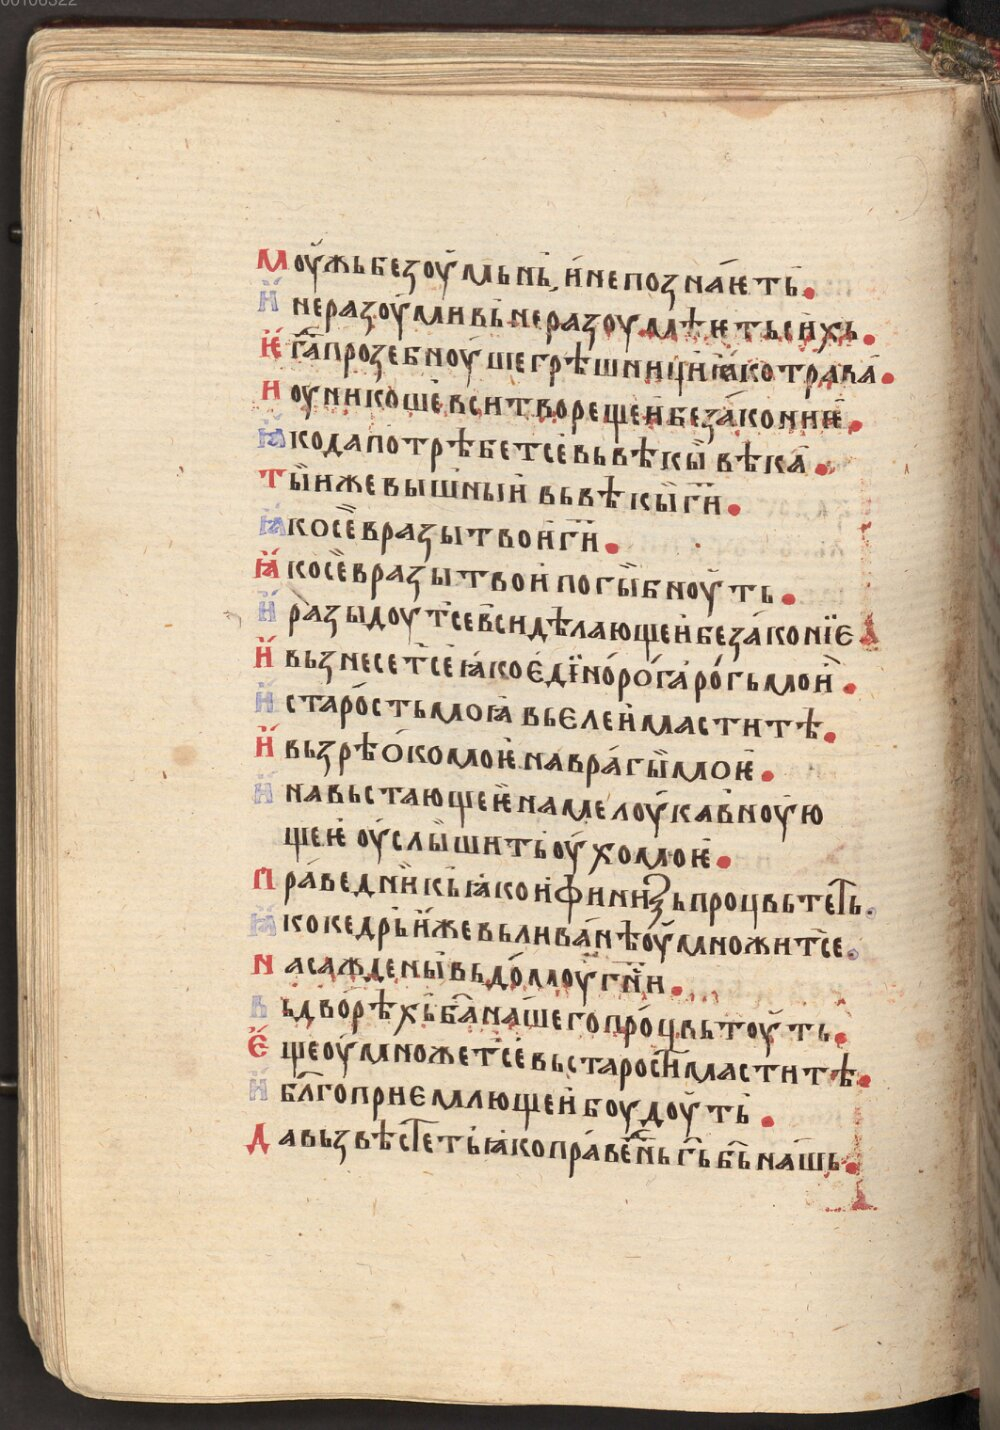 00106322
Моу́жь безоу́мьнь, и҆ не позна́ѥть.
И҆ неразоу́мивь не разоумѣѥть си́хь.
Ѥ҆гда̀ прозебноу́ше грѣшници ꙗ҆ко трава̀.
И оуникоше вси творещеи беза́кониѥ.
Ꙗ҆ко да потрѣбетсе вь вѣкы̀ вѣка̀.
Ты̀ иже вышныи вь вѣкы̀ гӥ.
Ꙗ҆ко се̏ вразы твои гӥ.
Ꙗ҆ко се̏ врази твои погы̀бноу́ть.
И҆ разыдоутсе вси дѣлающеи безаконїе
И҆ вьзнесетсе ꙗ҆ко є҆дїноро́га ро́гь мои.
И҆ старо́сть моꙗ̀ вь єлеи маститѣ.
И҆ вьзрѣ ѻ҆ко моѥ на вра́гы̀ моѥ.
И҆ на вьстающеѥ на ме лоу́кавноу́ю
щеѥ оу҆слы̀шить оу́хо моѥ.
Пра́ведникь ꙗ҆ко и҆финиѯь процвьтеть.
Ꙗ҆ко кедрь и҆же вь лива́нѣ оу҆множитсе.
Насаждены̀ вь до́моу́ гни.
Вь дво́рѣхь ба̀ на́шего про́цвьтоу́ть.
Є҆ще оу҆множетсе вь старости маститѣ.
И҆ блгоприємлющеи боудоу́ть.
Да вьзвѣстеть ꙗ҆ко пра́ве́нь гь бь на́шь.